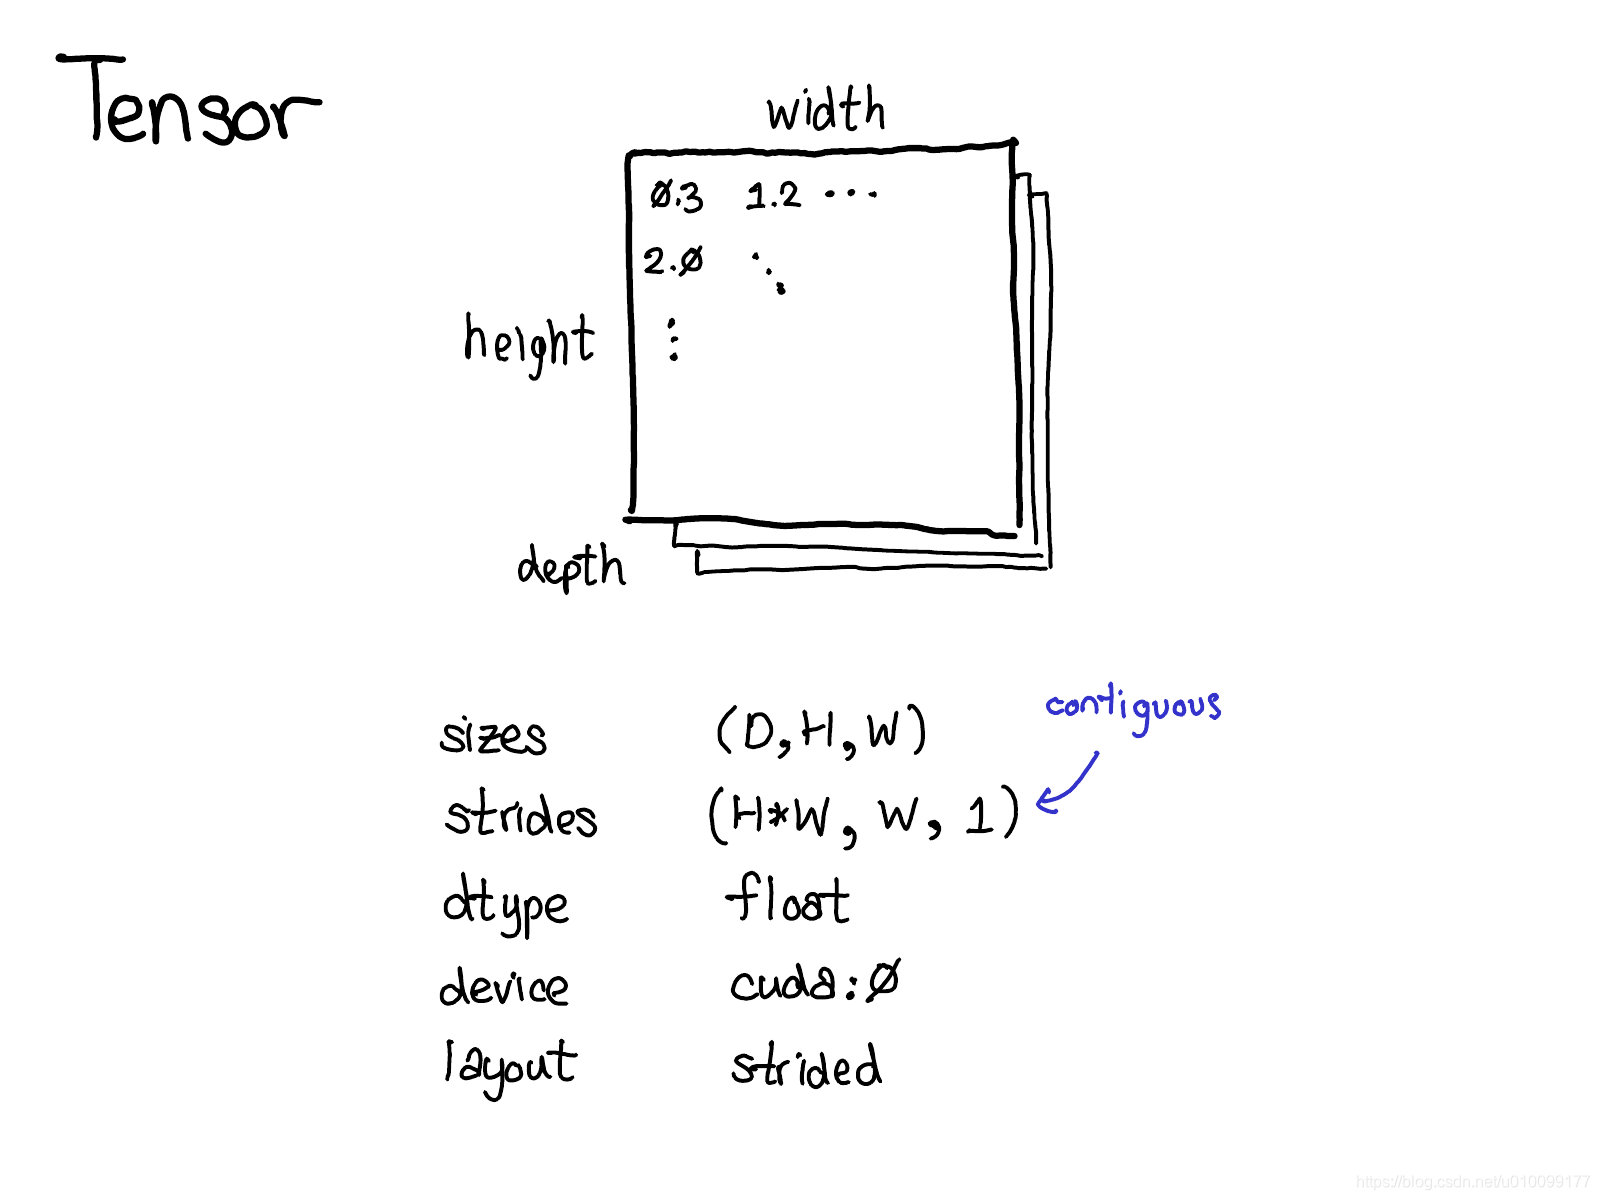 Tensor
width
0.3 1.2 ...
2.0
height
depth
contiguous
sizes (D, H, W)
strides (H*W, W, 1)
dtype float
device cuda:0
layout strided
https://blog.csdn.net/u010099177